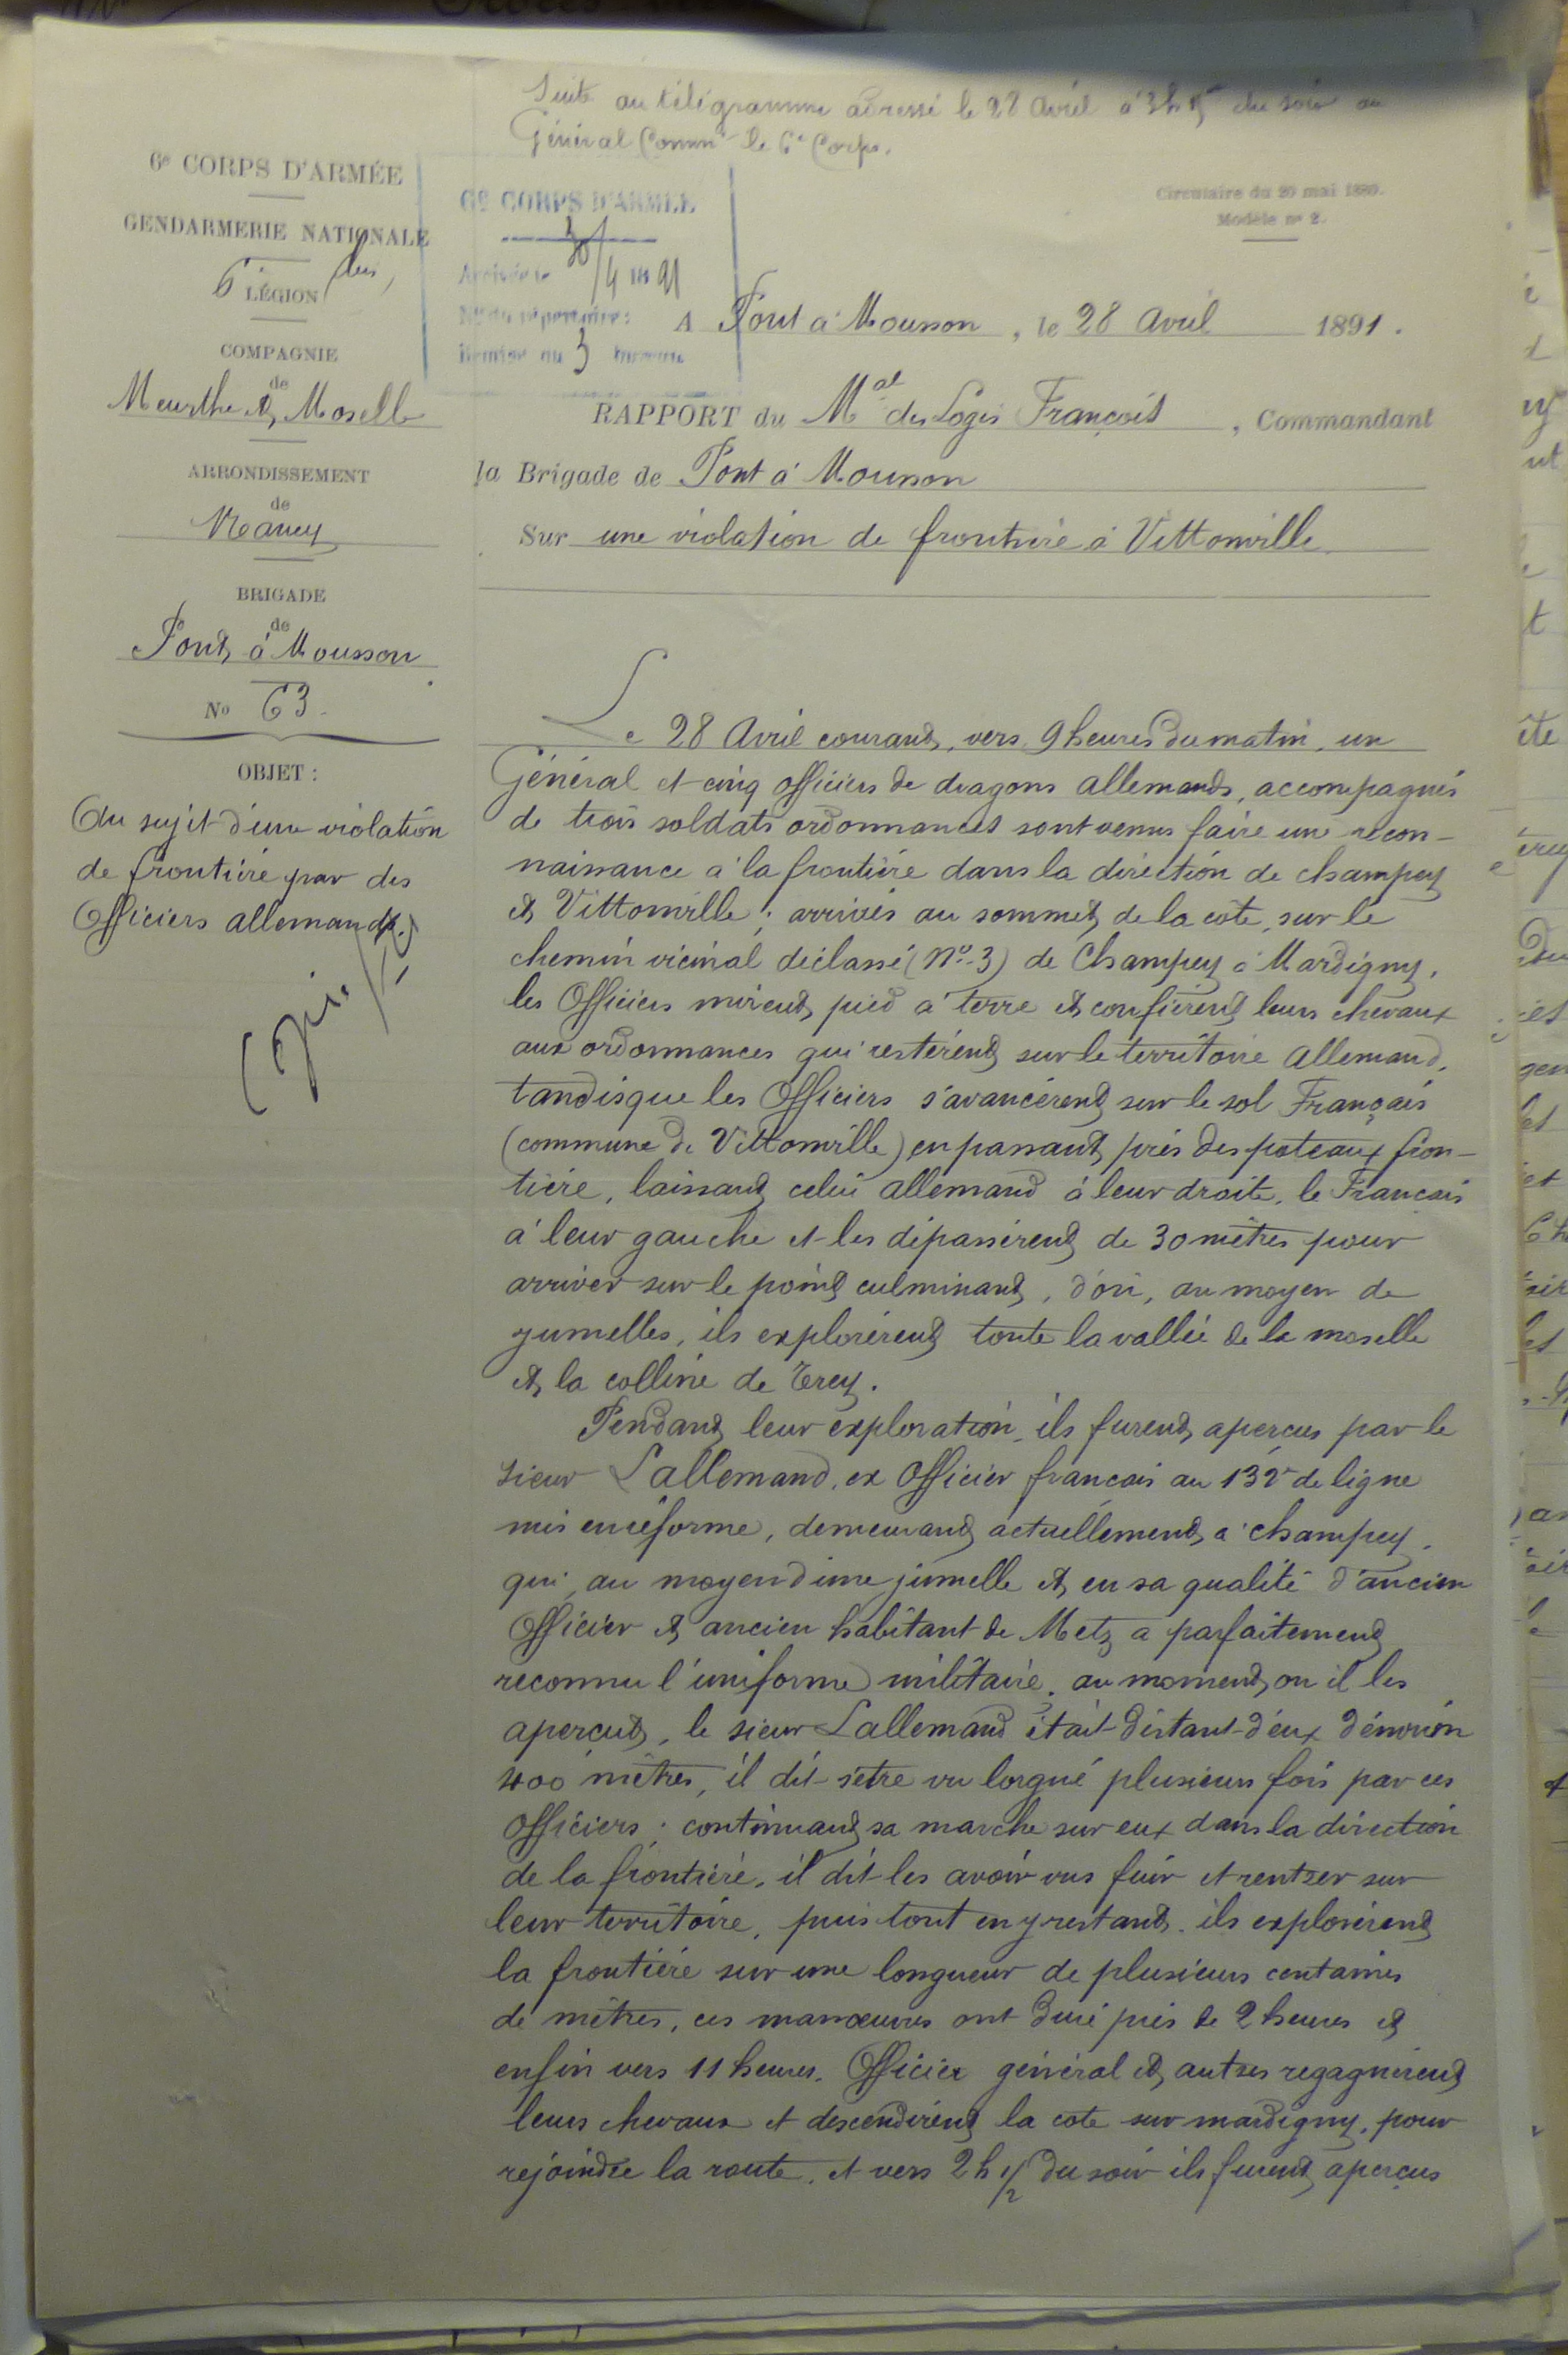 Suite au télégramme adressé le 28 Avril à 3h du soir au
Général Comm^t le 6e Corps.
6e CORPS D'ARMÉE
GENDARMERIE NATIONALE
6e LÉGION bis,
COMPAGNIE
de
Meurthe & Moselle
ARRONDISSEMENT
de
Nancy
BRIGADE
de
Pont à Mousson
No 63.
OBJET :
Au sujet d'une violation
de frontière par des
Officiers allemands.
Copie
6e CORPS D'ARMÉE
Arrivée le 30/4 1891
No du répertoire :
Remise au 3 bureau
Circulaire du 20 mai 1880.
Modèle no 2.
A Pont à Mousson, le 28 Avril 1891.
RAPPORT du Mal des Logis François, Commandant
la Brigade de Pont à Mousson
Sur une violation de frontière à Vittonville
Le 28 Avril courant, vers 9 heures du matin, un
Général et cinq officiers de dragons allemands, accompagnés
de trois soldats ordonnances sont venus faire une recon-
naissance à la frontière dans la direction de champey
et Vittonville ; arrivés au sommet de la cote, sur le
chemin vicinal déclassé (No 3) de Champey à Mardigny,
les Officiers mirent pied à terre et confièrent leurs chevaux
aux ordonnances qui restèrent sur le territoire Allemand,
tandisque les Officiers s'avancèrent sur le sol Français
(commune de Vittonville) en passant près des poteaux fron-
tière, laissant celui allemand à leur droite, le Français
à leur gauche et les dépassèrent de 30 mètres pour
arriver sur le point culminant, d'où, au moyen de
jumelles, ils explorèrent toute la vallée de la moselle
et la colline de Trey.
Pendant leur exploration, ils furent aperçus par le
sieur Lallemand, ex Officier francais au 132e de ligne
mis en réforme, demeurant actuellement à champey,
qui, au moyen d'une jumelle et en sa qualité d'ancien
Officier et ancien habitant de Metz a parfaitement
reconnu l'uniforme militaire ; au moment ou il les
aperçut, le sieur Lallemand était distant d'eux d'environ
400 mètres, il dit s'être vu lorgné plusieurs fois par ces
Officiers ; continuant sa marche sur eux dans la direction
de la frontière, il dit les avoir vus fuir et rentrer sur
leur territoire, puis tout en y restant, ils explorèrent
la frontière sur une longueur de plusieurs centaines
de mètres, ces manœuvres ont duré près de 2 heures et
enfin vers 11 heures, Officier général et autres regagnèrent
leurs chevaux et descendirent la cote sur mardigny, pour
rejoindre la route, et vers 2 h 1/2 du soir ils furent aperçus